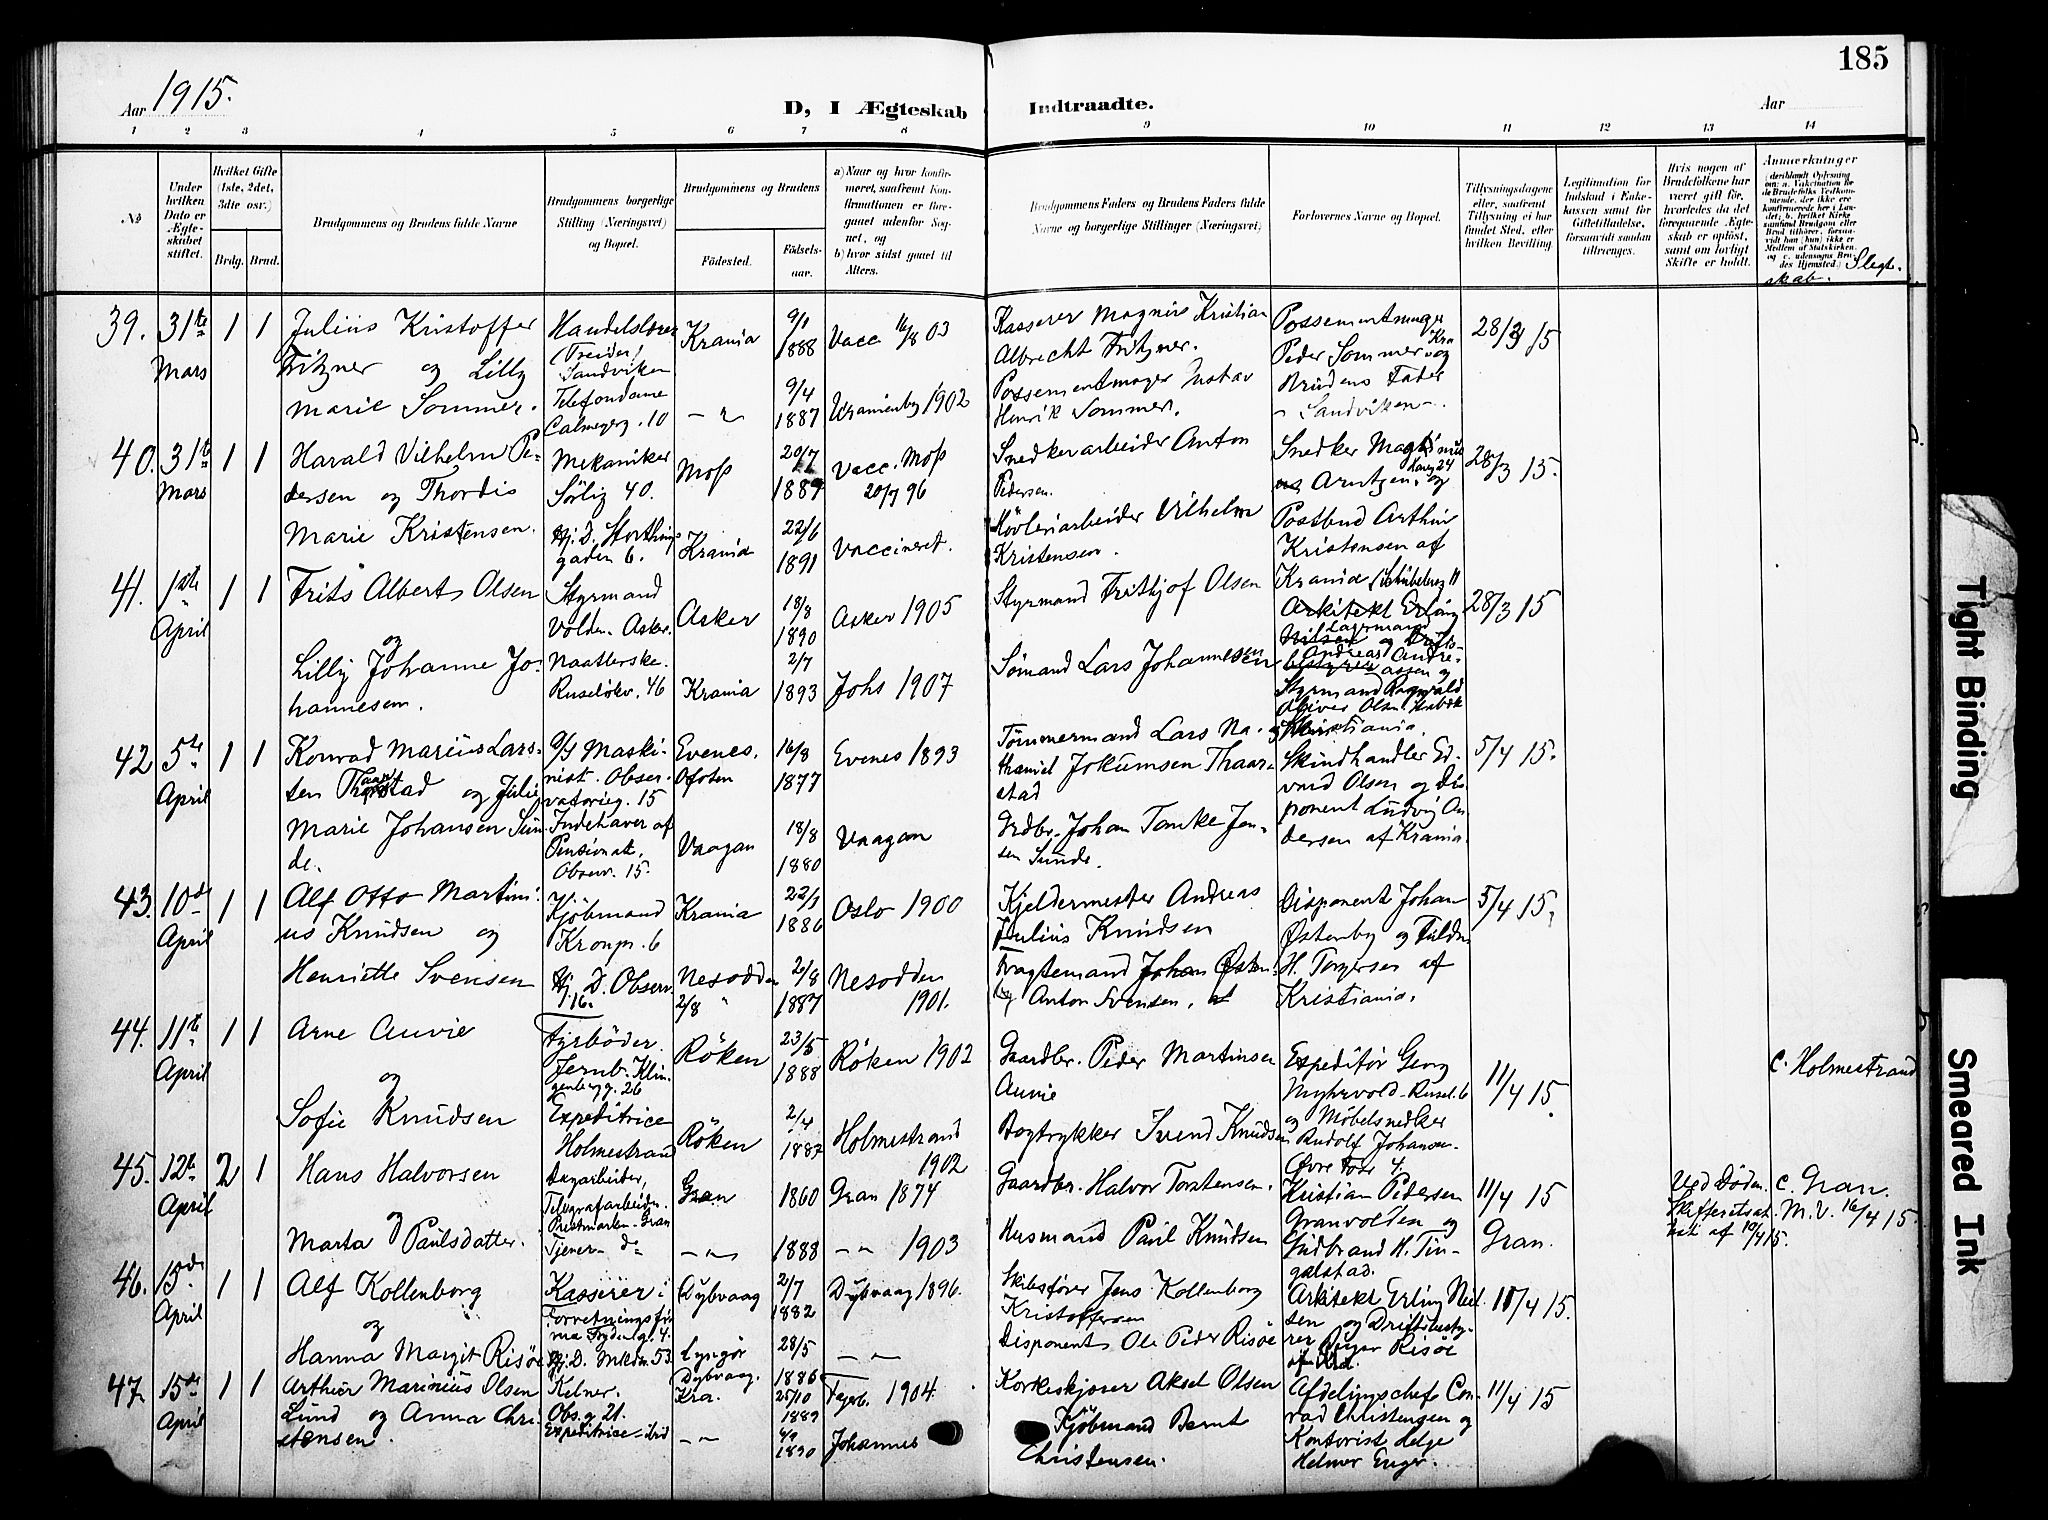 185
Aar 1915.
D, I Ægteskab Indtraadte.
Aar
1 2 3 4 5 6 7 8 9 10 11 12 13 14
No
Under hvilken Dato er Ægteskabet stiftet.
Hvilket Gifte (1ste, 2det, 3dte osv.)
Brdg. Brud.
Brudgommens og Brudens fulde Navne
Brudgommens borgerlige Stilling (Næringsvei) og Bopæl.
Brudgommens og Brudens
Fødested.
Fødselsaar.
a) Naar og hvor konfirmeret, saafremt Konfirmationen er foregaaet udenfor Sognet, og
b) hvor sidst gaaet til Alters.
Brudgommens Faders og Brudens Faders fulde Navne og borgerlige Stillinger (Næringsvei)
Forlovernes Navne og Bopæl.
Tillysningsdagene eller, saafremt Tillysning ei har fundet Sted, efter hvilken Bevilling.
Legitimation for Indskud i Enkekassen samt for Giftetilladelse, forsaavidt saadan tiltrænges.
Hvis nogen af Brudefolkene har været gift før, hvorledes da det foregaaende Ægteskab er opløst, samt om lovligt Skifte er holdt.
Anmerkninger
Slegtskab.
39. 31te Mars 1 1
Julius Kristoffer
Fritzner og Lilly
Marie Sommer.
Handelslærer
Sandviken
Telefondame
Calmeyerg. 10
Krania 9/1 1888 Vacc 16/8 03
— " — 9/4 1887 Uranienbg 1902
Kasserer Magnus Kristian
Albrecht Fritzner.
Possementmager Gustav
Henrik Sommer.
Possementmager
Peder Sommer Kra og
Brudens Fader
- Sandviken -.
28/3 15
40. 31te Mars 1 1
Harald Vilhelm Pe-
dersen og Thordis
Marie Kristensen.
Mekaniker
Sølig 40.
Hj. D. Storthings
gaden 6.
Moss 20/7 1889 Vacc. Moss
20/9 96
Krania 22/6 1891 Vaccineret.
Snedkerarbeider Anton
Pedersen.
Høvleriarbeider Vilhelm
Kristensen.
Snedker
Arntzen og
Postbud Arthur
Kristensen af
Krania
28/3 15.
41. 1ste April 1 1
Frits Albert Olsen
og
Lilly Johanne Jo-
hannesen.
Styrmand
Volden. Asker.
Ruseløkv. 46
Asker 18/8 1890 Asker 1905
Krania 2/7 1893 Johs 1907
Styrmand Frithjof Olsen
Sømand Lars Johannesen
Arkitekt Erling
Nilsen og
Andreas Andre-
assen og
Styrmand Ragnvald
Kristiania.
28/3 15
42 5te April 1 1
Konrad Marius Lars-
sen Thaarstad og Julie
Marie Johansen Sun-
de.
Maski-
nist. Obser-
vatorieg. 15
Indehaver af
Pensionat,
Observ. 15.
Evenes. Ofoten 16/8 1877 Evenes 1893
Vaagan 18/8 1880 Vaagan
Tømmermand Lars Na-
thaniel Jokumsen Thaar-
stad
Grdbr. Johan Tanke Jen-
sen Sunde.
Skindhandler Ed-
vard Olsen og Dis-
ponent Ludvig An-
dersen af Krania.
5/4 15.
43. 10de April 1 1
Alf Otto Martini-
us Knudsen og
Henriette Svensen
Kjøbmand
Kronpr. 6
Hj. D. Observ.
16.
Krania 22/1 1886 Oslo 1900
Nesodden 2/8 1887 Nesodden
2/8 " 1901.
Kjeldermester Andreas
Julius Knudsen
Fragtemand Johan Østen-
by Anton Svensen.
Disponent Johan
Østenby og
H. Torgersen af
Kristiania.
5/4 15.
44. 11te April 1 1
Arne Auvie
og
Sofie Knudsen
Fyrbøder.
Jernb. Klin-
genbergg. 26
Expeditrice
Holmestrand
Røken 23/5 1888 Røken 1902
Røken 2/4 1887 Holmestrand
1902
Gaardbr. Peder Martinsen
Auvie
Bogtrykker Svend Knudsen
Expeditør Georg
Myhrvold. Rusel. 6
og Møbelsnedker
Rudolf Johansen
Øvre Foss 4.
11/4 15.
C. Holmestrand
45. 12te April 2 1
Hans Halvorsen
og
Marta Paulsdatter.
Dagarbeider,
Telegrafarbeider.
Prestmarken - Gran
Tjener — do
Gran 1860 Gran 1874
— " — 1888 — " — 1903
Gaardbr. Halvor Torstensen.
Husmand Paul Knudsen
Kristian Pedersen
Granvolden og
Gudbrand H. Tin-
gelstad.
11/4 15
Gran.
Ved Døden.
Skifteretsat-
test af 10/4 15.
C. Gran.
M.V. 16/4 15.
46. 15de April 1 1
Alf Kollenborg
og
Hanna Margit Risøe
Kasserer i
Forretningsfir-
ma Frydenlg. 4.
Hj. D. 53
Dybvaag 2/7 1882 Dybvaag 1896.
Lyngør Dybvaag. 28/5 1886 — " —
Skibsfører Jens Kollenborg
Kristoffersen
Disponent Ole Peder Risøe
Arkitekt Erling Niel-
sen og Driftsbesty-
rer Birger Risøe
af Kra.
11/4 15.
47. 15de April 1 1
Arthur Marinius Olsen
Lund og Anna Chri-
stensen.
Kelner.
Obs.g 21.
Expeditrice - ibid
Kra. 25/10 1889 Fagerb. 1904.
— " — 1890 Johannes
Korkeskjærer Aksel Olsen
Kjøbmand Bernt
Christensen.
Afdelingschef Con-
rad Christensen og
Kontorist Helge
Helmer Enger.
11/4 15
Tight Binding
Smeared Ink